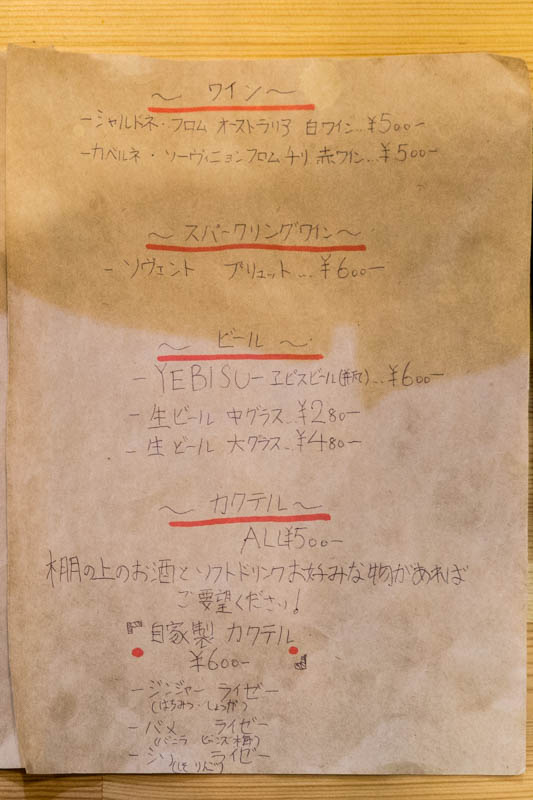 ～ ワイン ～
ーシャルドネ・フロム オーストラリア 白ワイン...¥500ー
ーカベルネ・ソーヴィニョンフロムチリ 赤ワイン...¥500ー
～ スパークリングワイン ～
ー ソヴェント ブリュット...¥600ー
～ ビール ～
ー YEBISUー ヱビスビール...¥600ー
ー 生ビール 中グラス...¥280ー
ー 生ビール 大グラス...¥480ー
～ カクテル ～
ALL¥500ー
棚の上のお酒とソフトドリンクお好みな物があれば
ご要望ください!
『自家製 カクテル』
¥600ー
ー ジンジャー ライゼー
(はちみつ・しょうが)
ー バメ ライゼー
(バニラ ビーンズ 梅)
ー ライゼー
りんご